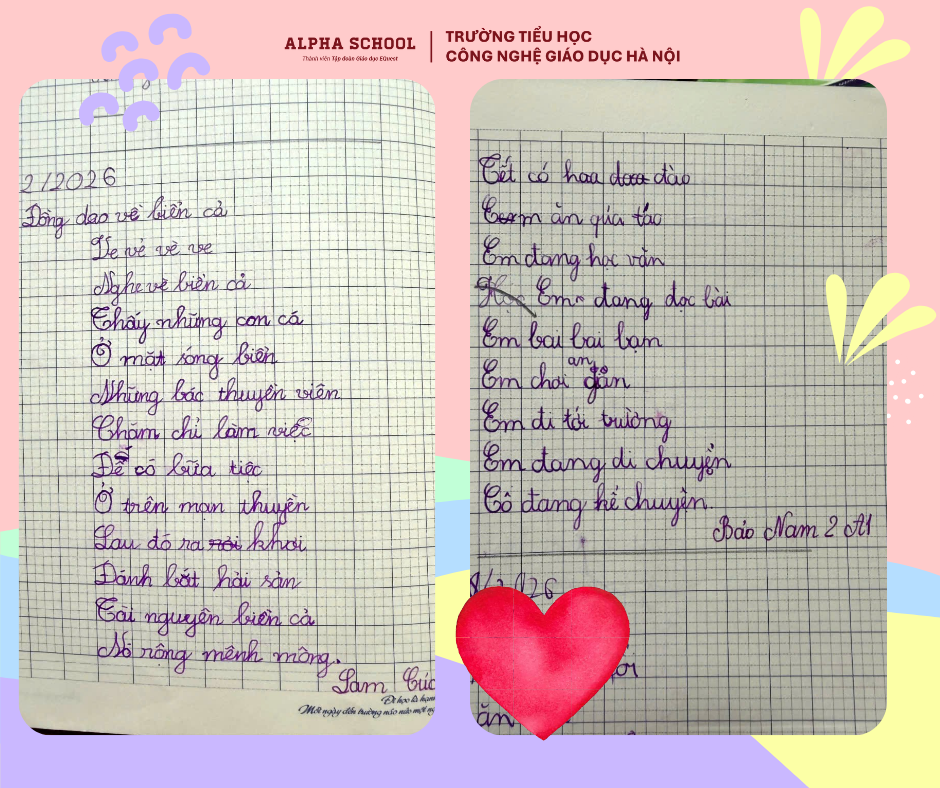 ALPHA SCHOOL
Thành viên Tập đoàn Giáo dục EQuest
TRƯỜNG TIỂU HỌC
CÔNG NGHỆ GIÁO DỤC HÀ NỘI
2/2026
Đồng dao về biển cả
Ve vẻ vè ve
Nghe vè biển cả
Thấy những con cá
Ở mặt sóng biển
Những bác thuyền viên
Chăm chỉ làm việc
Để có bữa tiệc
Ở trên mạn thuyền
Sau đó ra khơi
Đánh bắt hải sản
Tài nguyên biển cả
Nó rộng mênh mông.
Lam Cúc
Đi học là hạn
Mỗi ngày đến trường
Tết có hoa đào
Em ăn quả táo
Em đang học văn
Em đang đọc bài
Em bai bai bạn
Em chơi gần
an
Em đi tới trường
Em đang di chuyển
Cô đang kể chuyện.
Bảo Nam 2 A1
/2026
ăn